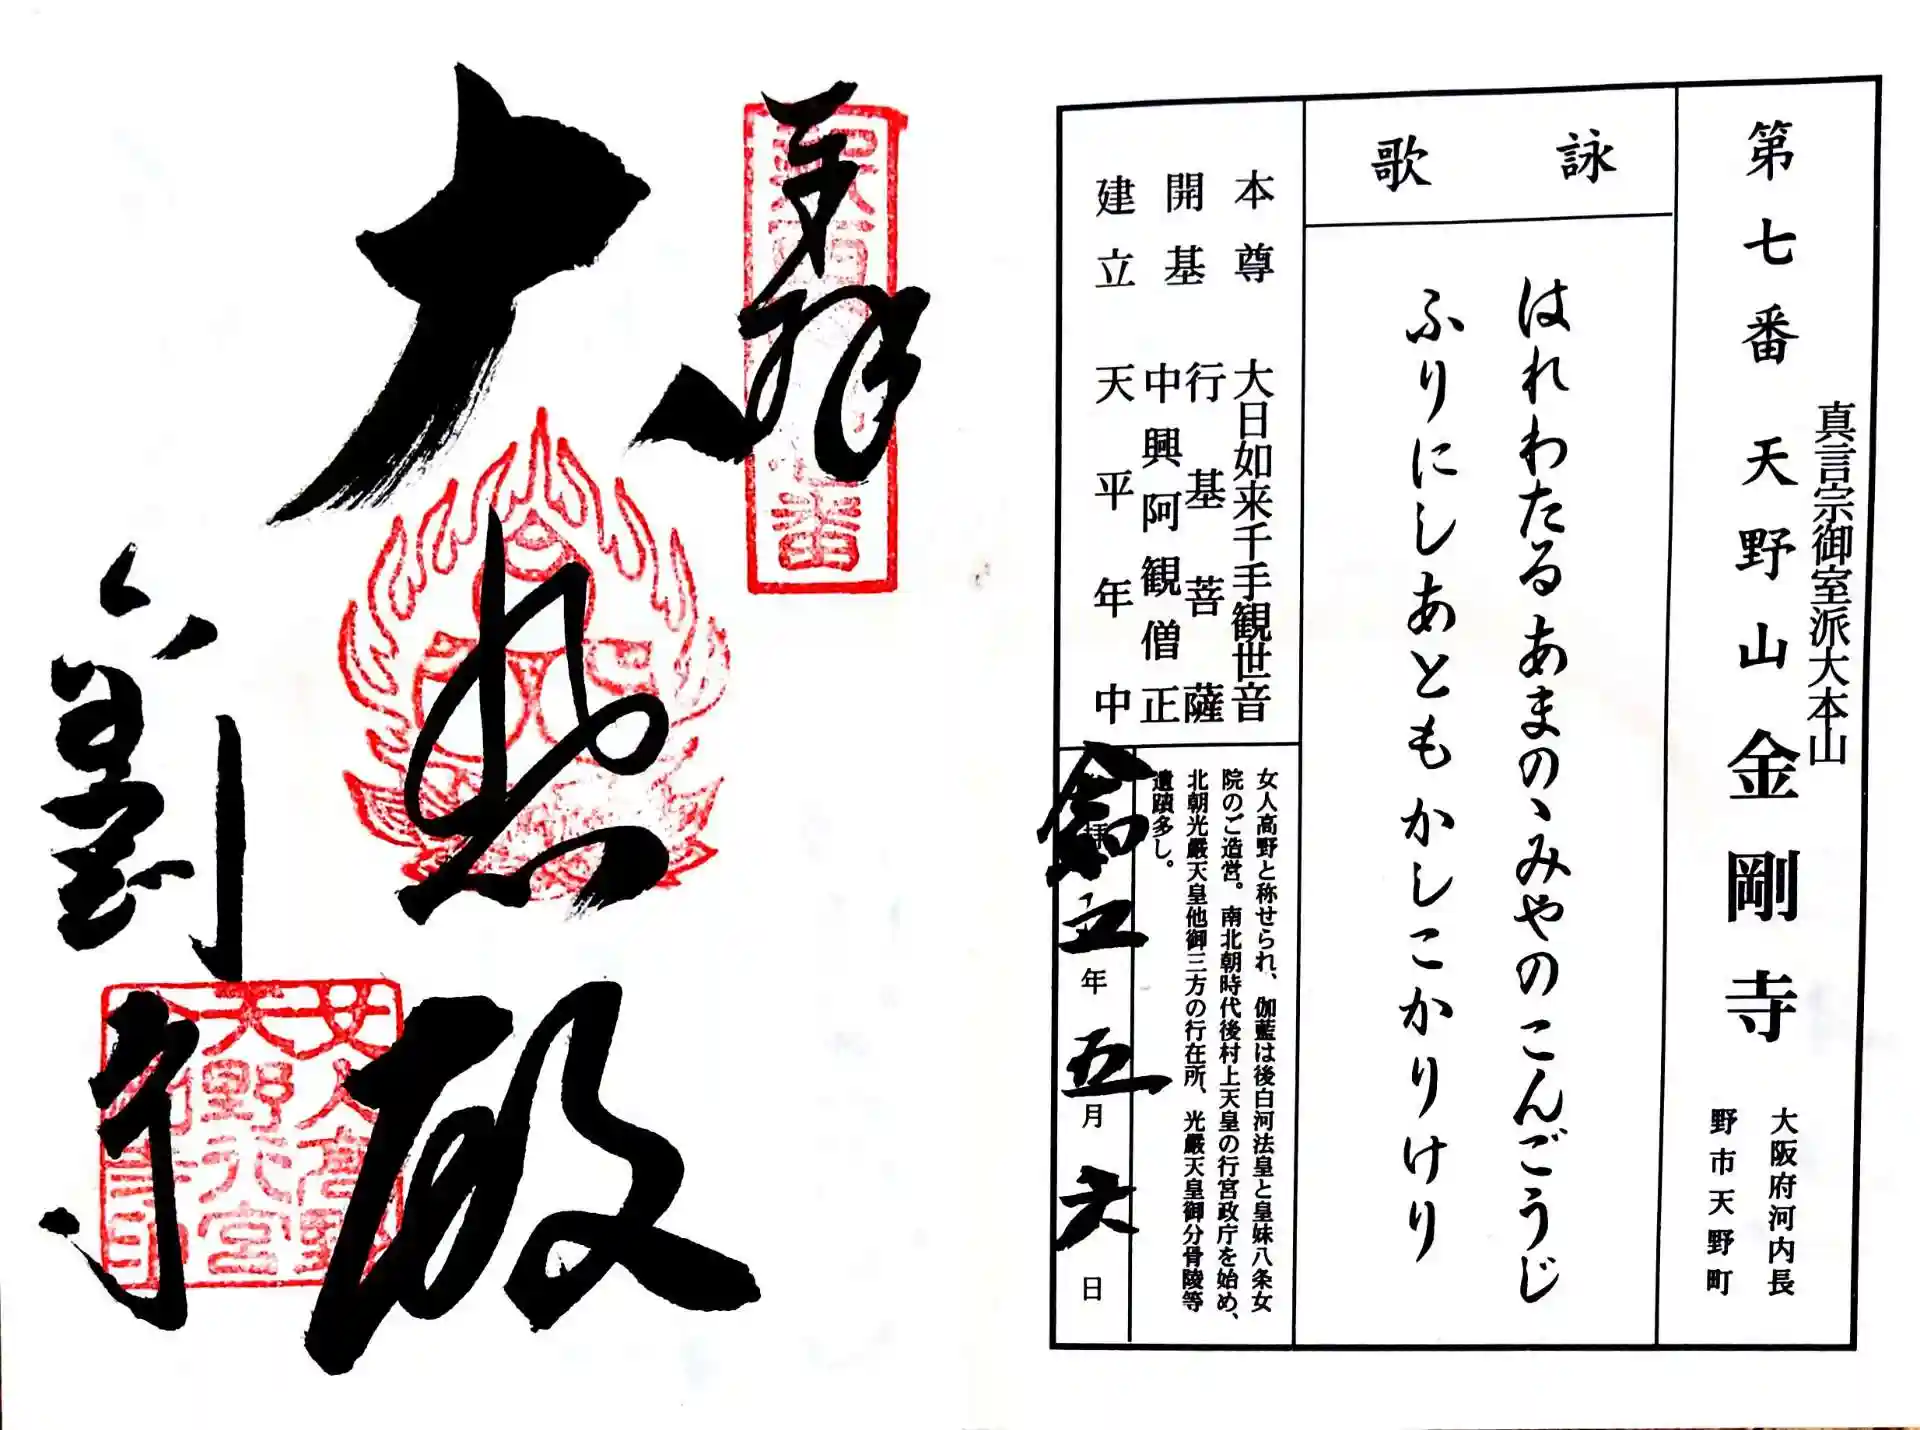 第七番 天野山 金剛寺
真言宗御室派大本山
大阪府河内長
野市天野町
詠歌
はれわたるあまのゝみやのこんごうじ
ふりにしあともかしこかりけり
本尊 大日如来千手観世音
開基 行基菩薩
中興阿観僧正
建立 天平年中
女人高野と称せられ、伽藍は後白河法皇と皇妹八条女
院のご造営。南北朝時代後村上天皇の行宮政庁を始め、
北朝光厳天皇他御三方の行在所、光厳天皇御分骨陵等
遺蹟多し。
令和五年五月六日
奉拝
大悲殿
金剛寺
女人高野
天野行宮
金剛寺印